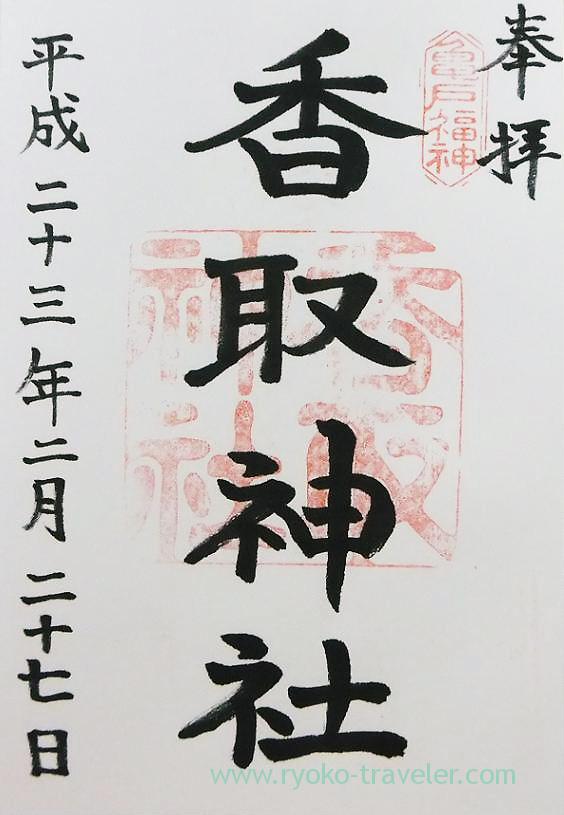 奉拝
亀戸福神
香取神社
香取神社
平成二十三年二月二十七日
www.ryoko-traveler.com